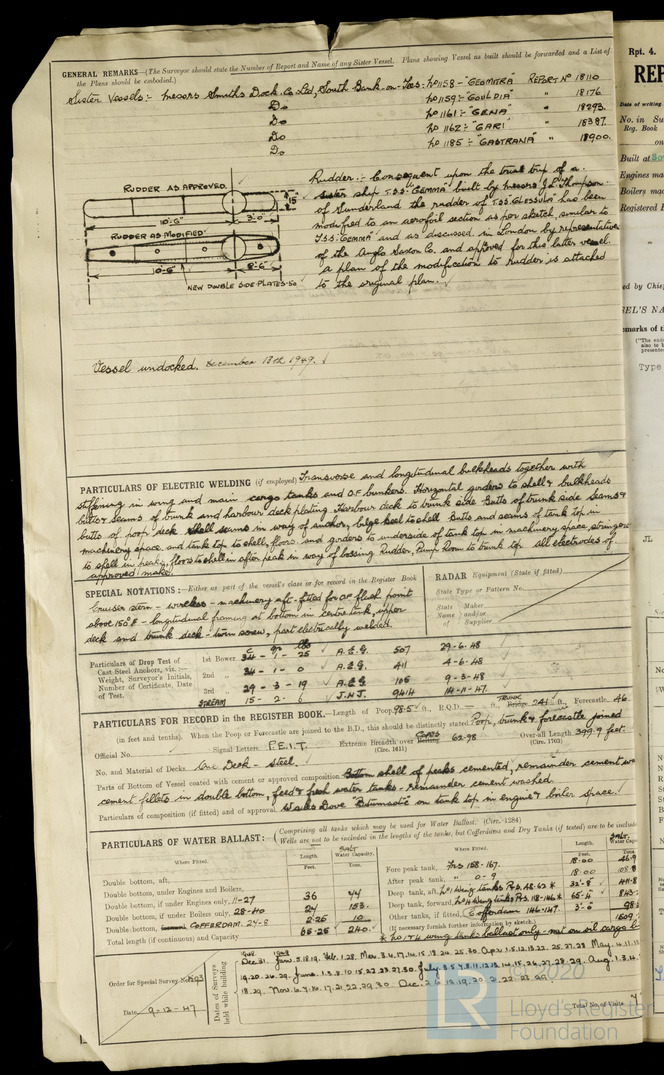 GENERAL REMARKS—(The Surveyor should state the Number of Report and Name of any Sister Vessel. Plans showing Vessel as built should be forwarded and a List of
the Plans should be embodied.)
Sister Vessels:- Messrs Smiths Dock Co Ltd, South Bank-on-Tees: No 1158 - "GEOMITRA" REPORT No 18110
Do No 1159:- "GOULDIA" " 18176
Do No 1161:- "GENA" " 18293.
Do No 1162:- "GARI" " 18387.
Do No 1185:- "GASTRANA" " 18900.
RUDDER AS APPROVED
10'-6" 3'-0" 15
RUDDER AS MODIFIED
10'-6" 2'-6"
NEW DOUBLE SIDE PLATES .50
Rudder:- Consequent upon the trial trip of a
sister ship T.S.S. "GEMMA" built by Messrs J.L. Thompson
of Sunderland the rudder of T.S.S. "GLESSULA" has been
modified to an aerofoil section as per sketch, similar to
T.S.S. "GEMMA" and as discussed in London by representative
of the Anglo Saxon Co. and approved for this latter vessel.
a plan of the modification to rudder is attached
to the original plan.
Vessel undocked. December 13th 1949.
PARTICULARS OF ELECTRIC WELDING (if employed) Transverse and longitudinal bulkheads together with
stiffening in wing and main cargo tanks and O.F. bunkers. Horizontal girders to shell & bulkheads
butts & seams of trunk and harbour deck plating. Harbour deck to trunk side. Butts of trunk side seams &
butts of poop deck. Shell seams in way of anchor, bilge keel to shell. Butts and seams of tank top in
machinery space, and tank top to shell, floors and girders to underside of tank top in machinery space, stringers
to shell in peaks, floors to shell in after peak in way of bossing. Rudder, Pump Room to trunk top. all electrodes of
approved make.
SPECIAL NOTATIONS:—Either as part of the vessel's class or for record in the Register Book
Cruiser stern - wireless - machinery aft - fitted for OF flash point
above 150°F - longitudinal framing at bottom in centre tank, upper
deck and trunk deck - twin screw, part electrically welded.
RADAR Equipment (State if fitted)
State Type or Pattern No.
State Maker
Name and/or of
Supplier
Particulars of Drop Test of
Cast Steel Anchors, viz.:—
Weight, Surveyor's Initials,
Number of Certificate, Date
of Test.
C qrs lbs
1st Bower 34 - 1 - 25 A.E.G. 507 29-6-48
2nd " 34 - 1 - 0 A.E.G. 411 4-6-48
3rd " 29 - 3 - 19 A.E.G 105 9-3-48
STREAM 15 - 2 - 6 J.H.J. 9414 14-11-47.
PARTICULARS FOR RECORD in the REGISTER BOOK.—Length of Poop 98.5 ft., R.Q.D. — ft., TRUNK Bridge 241 ft., Forecastle 46
(in feet and tenths). When the Poop or Forecastle are joined to the B.D., this should be distinctly stated Poop, trunk & forecastle joined
Official No. Signal Letters P.E.I.T. Extreme Breadth over (Circ. 1611) 62.98 Over-all Length (Circ. 1703) 399.9 feet.
No. and Material of Decks. One Deck - Steel.
Parts of Bottom of Vessel coated with cement or approved composition. Bottom shell of peaks cemented, remainder cement wa
cement fillets in double bottom, feed & fresh water tanks - remainder cement washed
Particulars of composition (if fitted) and of approval. Wailes Dove "Bitumastic" on tank top in engine & boiler space.
PARTICULARS OF WATER BALLAST:— (Comprising all tanks which may be used for Water Ballast: (Circ. 1284)
Wells are not to be included in the lengths of the tanks, but Cofferdams and Dry Tanks (if tested) are to be include
Where Fitted. Length. Feet. SALT Water Capacity. Tons.
Double bottom, aft,
Double bottom, under Engines and Boilers,
Double bottom, if under Engines only, 11-27 36 44
Double bottom, if under Boilers only, 28-40 24 153.
Double bottom, COFFERDAM. 24-8 2.25 10
Total length (if continuous) and Capacity 65.25 240
Where Fitted. Length. Feet. SALT Water Cap. Tons.
Fore peak tank, Frs 158-167. 18.00 46.9
After peak tank, " 0-9 18.00 108.8
Deep tank, aft, 33'-8" 411.8
Deep tank, forward, 65'-4" 843.
Other tanks, if fitted, Cofferdam 146-147 3'-6 98.
(If necessary furnish further information by sketch) 1509
* No 1 & 4 wing tanks ballast only not on oil cargo
Order for Special Survey No.
Date 9-12-47
Dates of Surveys
held while building
Total No. of Visits
©2020
LR
Lloyd's Register
Foundation
Rpt. 4.
REP
Date of writing
No. in Su
Reg. Book
on
Built at
Engines ma
Boilers mad
Registered
ed by Chie
EL'S NA
emarks of th
("The
also to b
presente
Type
JL